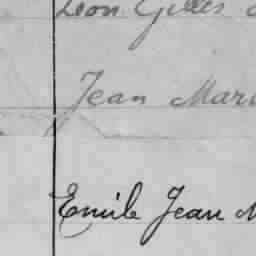 Léon Gilles
Jean Mari
Emile Jean M